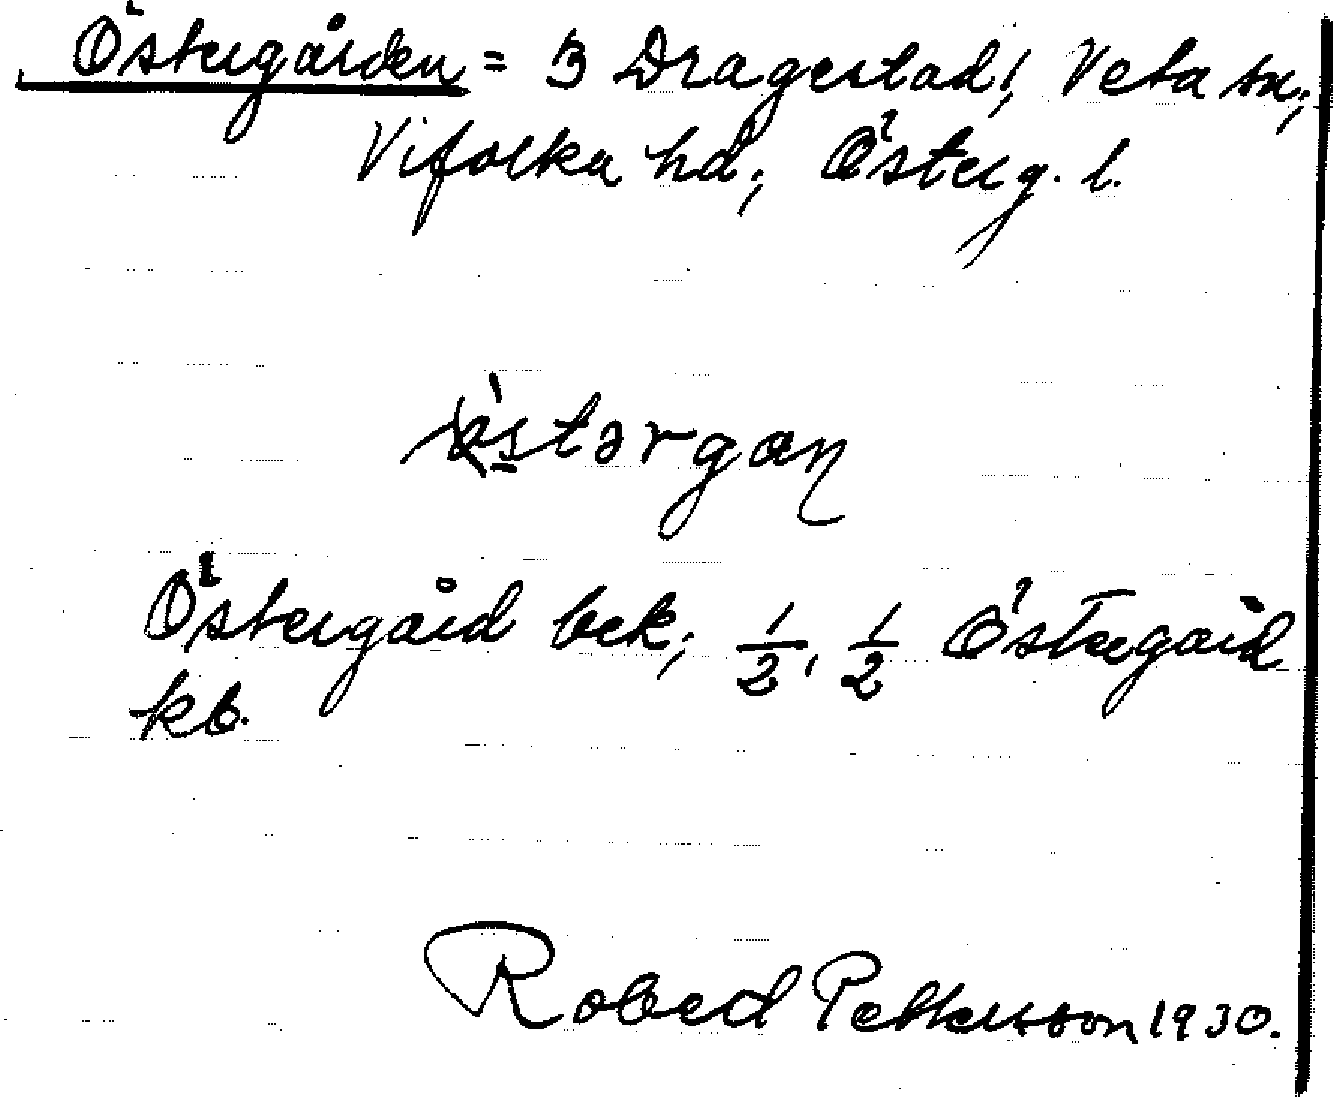 Östergården = 3 Dragestad, Veta sn;
Vifolka hd; Österg. l.
östərgaɳ
Östergård bek; 1/2, 1/2 Östergård
kb.
Robed Pettersson 1930.